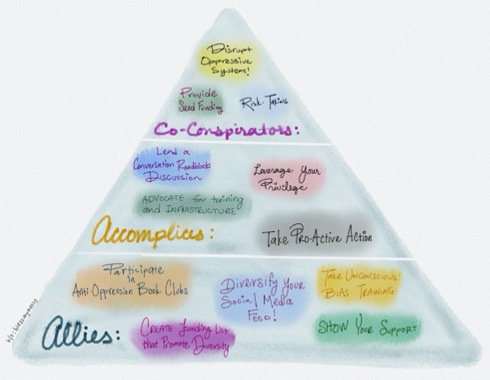 Disrupt
Oppressive
Systems!
Provide
Seed Funding
Risk Taking
Co-Conspirators:
Lead a
Conversation Roadblocks
Discussion
Leverage Your
Privilege
ADVOCATE for training
and INFRASTRUCTURE
Accomplices:
Take Pro-Active Action
Participate
in
Anti-Oppression Book Clubs
Diversify Your
Social Media
Feed!
TAKE UNCONSCIOUS
BIAS TRAINING
Allies:
CREATE Funding List
that Promote Diversity
SHOW YOUR SUPPORT